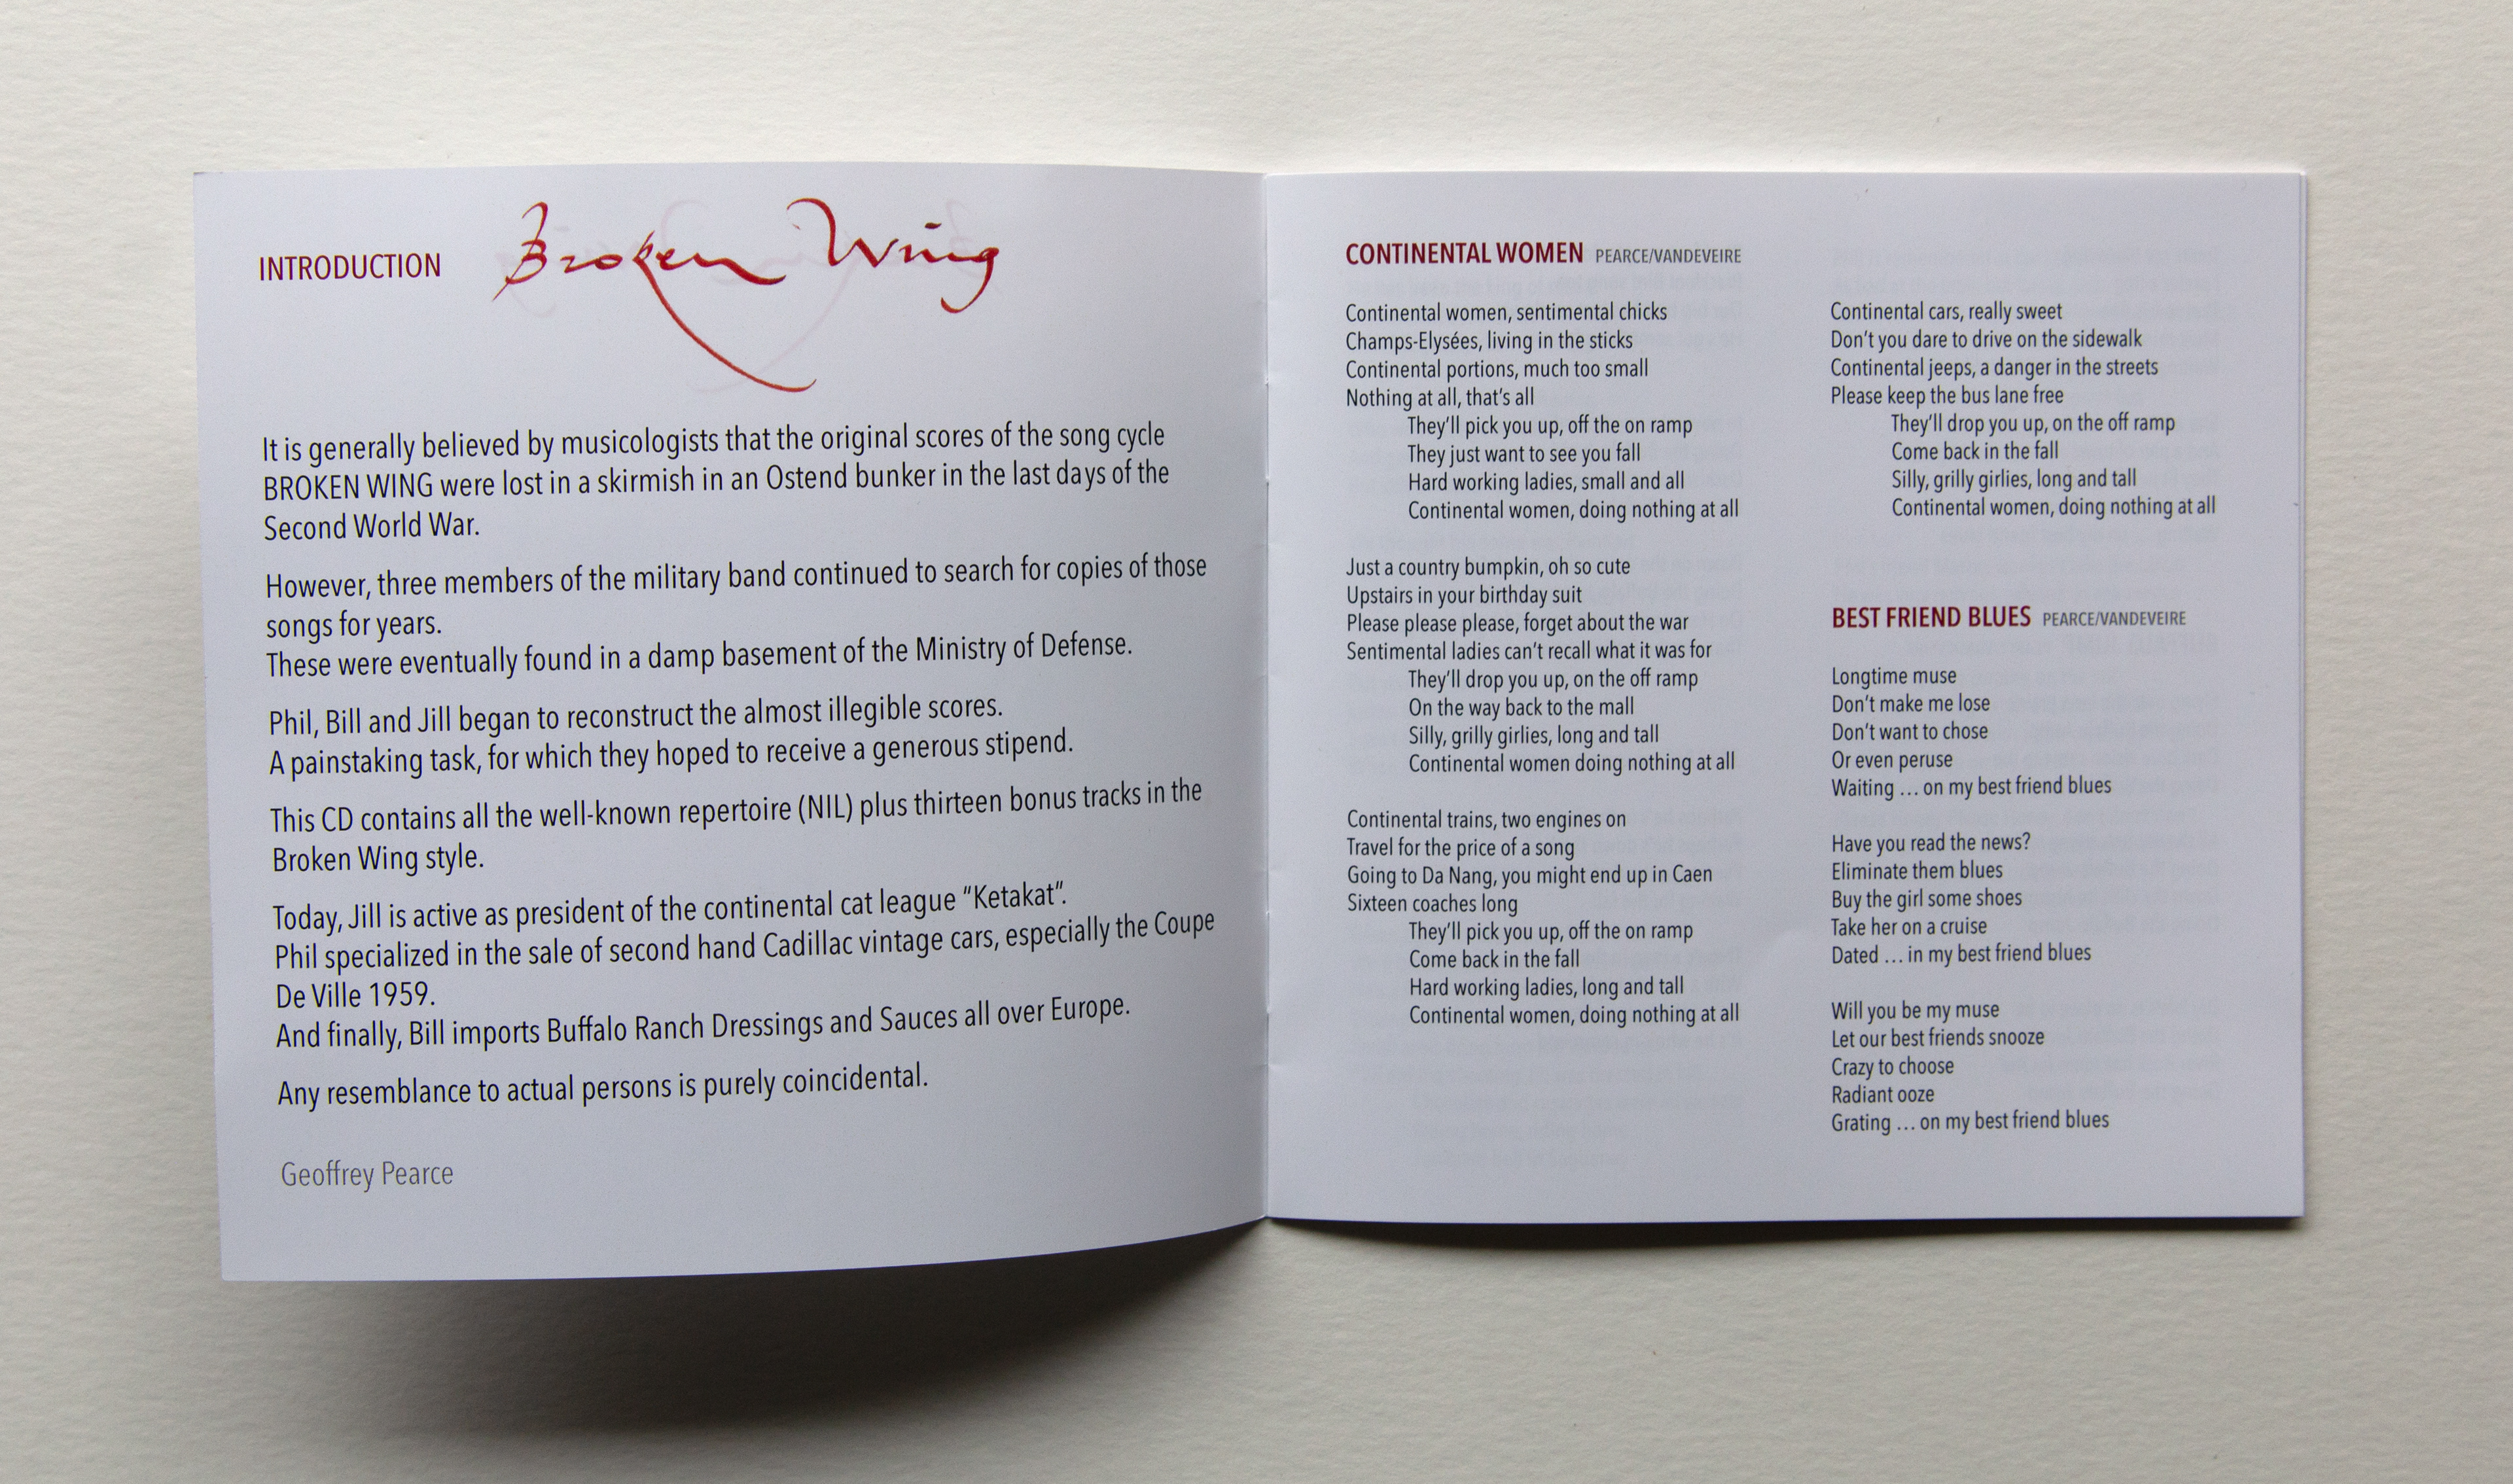 INTRODUCTION Broken Wing
It is generally believed by musicologists that the original scores of the song cycle
BROKEN WING were lost in a skirmish in an Ostend bunker in the last days of the
Second World War.
However, three members of the military band continued to search for copies of those
songs for years.
These were eventually found in a damp basement of the Ministry of Defense.
Phil, Bill and Jill began to reconstruct the almost illegible scores.
A painstaking task, for which they hoped to receive a generous stipend.
This CD contains all the well-known repertoire (NIL) plus thirteen bonus tracks in the
Broken Wing style.
Today, Jill is active as president of the continental cat league “Ketakat”.
Phil specialized in the sale of second hand Cadillac vintage cars, especially the Coupe
De Ville 1959.
And finally, Bill imports Buffalo Ranch Dressings and Sauces all over Europe.
Any resemblance to actual persons is purely coincidental.
Geoffrey Pearce
CONTINENTAL WOMEN PEARCE/VANDEVEIRE
Continental women, sentimental chicks
Champs-Elysées, living in the sticks
Continental portions, much too small
Nothing at all, that’s all
They’ll pick you up, off the on ramp
They just want to see you fall
Hard working ladies, small and all
Continental women, doing nothing at all
Just a country bumpkin, oh so cute
Upstairs in your birthday suit
Please please please, forget about the war
Sentimental ladies can’t recall what it was for
They’ll drop you up, on the off ramp
On the way back to the mall
Silly, grilly girlies, long and tall
Continental women doing nothing at all
Continental trains, two engines on
Travel for the price of a song
Going to Da Nang, you might end up in Caen
Sixteen coaches long
They’ll pick you up, off the on ramp
Come back in the fall
Hard working ladies, long and tall
Continental women, doing nothing at all
Continental cars, really sweet
Don’t you dare to drive on the sidewalk
Continental jeeps, a danger in the streets
Please keep the bus lane free
They’ll drop you up, on the off ramp
Come back in the fall
Silly, grilly girlies, long and tall
Continental women, doing nothing at all
BEST FRIEND BLUES PEARCE/VANDEVEIRE
Longtime muse
Don’t make me lose
Don’t want to chose
Or even peruse
Waiting … on my best friend blues
Have you read the news?
Eliminate them blues
Buy the girl some shoes
Take her on a cruise
Dated … in my best friend blues
Will you be my muse
Let our best friends snooze
Crazy to choose
Radiant ooze
Grating … on my best friend blues